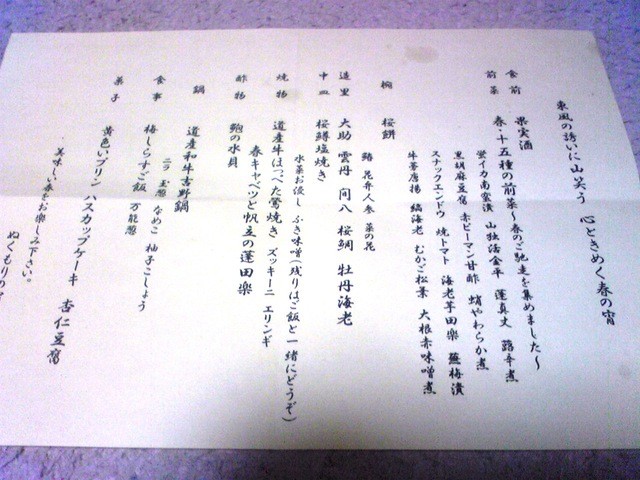 東風の誘いに山笑う 心ときめく春の宵
食前 果実酒
前菜 春・十五種の前菜～春のご馳走を集めました～
蛍イカ南蛮漬 山独活金平 蓬真丈 蕗辛煮
黒胡麻豆腐 赤ピーマン甘酢 蛸やわらか煮
スナックエンドウ 焼トマト 海老芋田楽 蕪梅漬
牛蒡唐揚 縞海老 むかご松葉 大根赤味噌煮
椀 桜餅
鯛 花弁人参 菜の花
造里 大助 雲丹 間八 桜鯛 牡丹海老
中皿 桜鱒塩焼き
水菜お浸し ふき味噌(残りはご飯と一緒にどうぞ)
焼物 道産牛ほっぺた鶯焼き ズッキーニ エリンギ
春キャベツと帆立の蓮田楽
酢物 鮑の水貝
鍋 道産和牛吉野鍋
ニラ 玉葱 なめこ 柚子こしょう
食事 梅しらすご飯 万能葱
菓子 黄色いプリン ハスカップケーキ 杏仁豆腐
美味しい春をお楽しみ下さい。
ぬくもりの